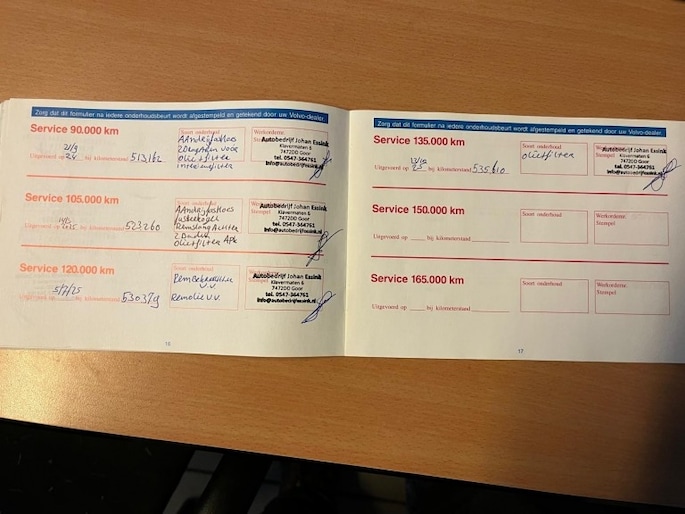 Zorg dat dit formulier na iedere onderhoudsbeurt wordt afgestempeld en getekend door uw Volvo-dealer.
Service 90.000 km
Soort onderhoud
Werkorderno
Autobedrijf Johan Essink
Klavermaten 6
7472DD Goor
tel. 0547-364761
info@autobedrijfessink.nl
Aandrijfashoes
voor
Oliefilter
interieurfilter
21/9
24
Uitgevoerd op bij kilometerstand 513162
Service 105.000 km
Autobedrijf Johan Essink
Klavermaten 6
7472DD Goor
tel. 0547-364761
info@autobedrijfessink.nl
Aandrijfashoes
Fuseekogel
Remslang Achter
Oliefilter APK
2025
Uitgevoerd op bij kilometerstand 523260
Service 120.000 km
Soort onderhoud
Autobedrijf Johan Essink
Klavermaten 6
7472DD Goor
tel. 0547-364761
info@autobedrijfessink.nl
V.V.
Remolie V.V.
5/7/25
Uitgevoerd op bij kilometerstand 530379
16
Zorg dat dit formulier na iedere onderhoudsbeurt wordt afgestempeld en getekend door uw Volvo-dealer.
Service 135.000 km
Soort onderhoud
Werkorderno
Stempel
Autobedrijf Johan Essink
Klavermaten 6
7472DD Goor
tel. 0547-364761
info@autobedrijfessink.nl
Oliefilter
Uitgevoerd op bij kilometerstand 535610
Service 150.000 km
Soort onderhoud
Werkorderno
Stempel
Uitgevoerd op ____ bij kilometerstand ____
Service 165.000 km
Soort onderhoud
Werkorderno
Stempel
Uitgevoerd op ____ bij kilometerstand ____
17